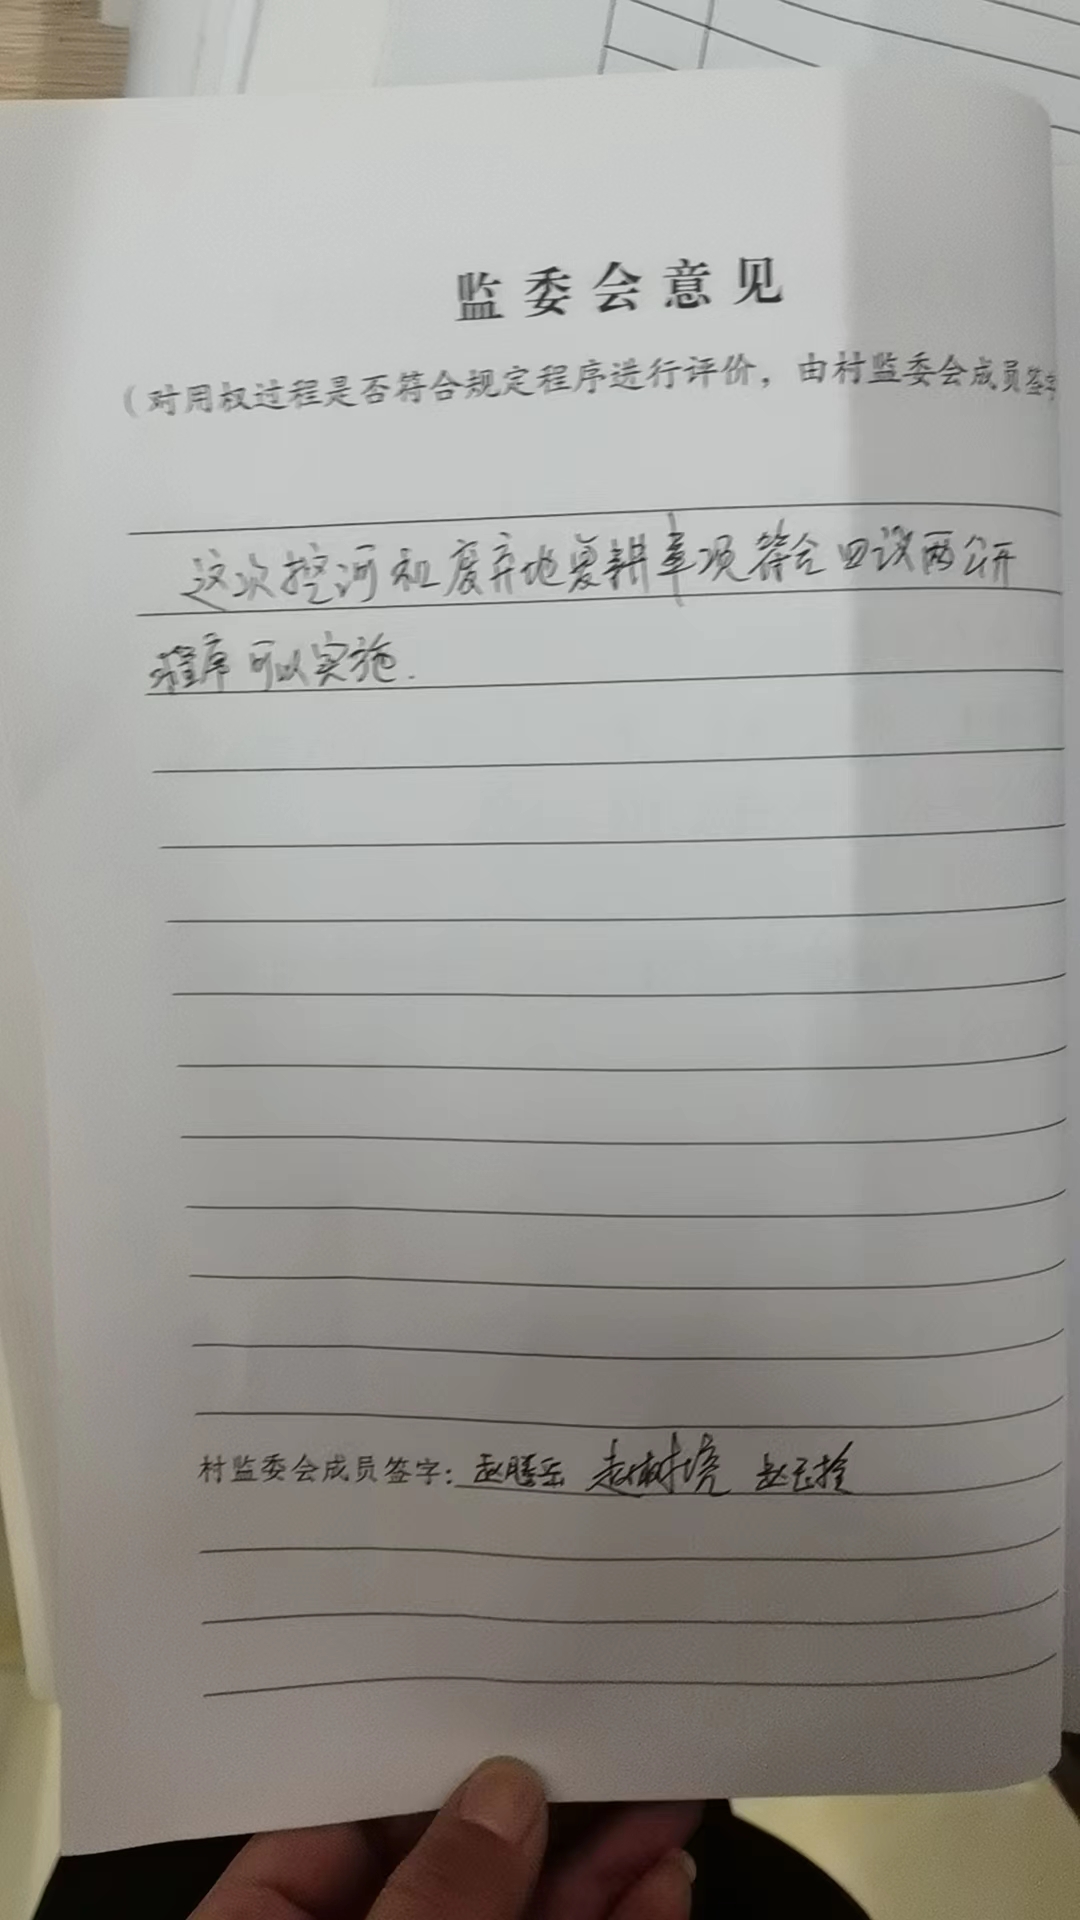 监委会意见
（对用权过程是否符合规定程序进行评价，由村监委会成员签字
这次挖河和废弃地复耕事项符合四议两公开
程序可以实施.
村监委会成员签字：赵腾岳 赵树亮 赵玉拴